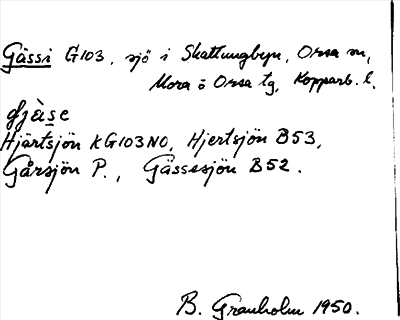 Gässi G103, sjö i Skattungbyn, Orsa sn,
Mora o Orsa tg, Kopparb. l.
jàse
Hjärtsjön KG103NO, Hjertsjön B53,
Gårsjön P., Gässesjön B52.
B. Granholm 1950.